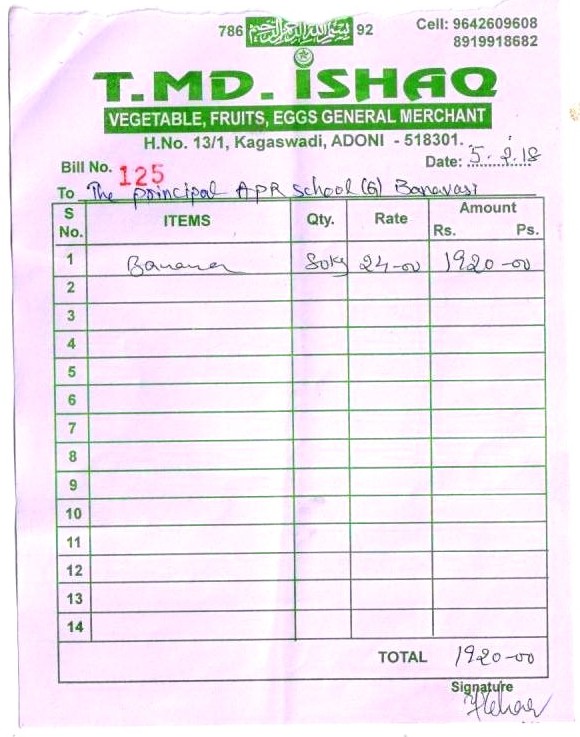 786 بسم الله الرحمن الرحيم 92
Cell: 9642609608
8919918682
T.MD. ISHAQ
VEGETABLE, FRUITS, EGGS GENERAL MERCHANT
H.No. 13/1, Kagaswadi, ADONI - 518301.
Bill No. 125 Date: 5.2.18
To The principal APR School (G) Banavasi
S No. ITEMS Qty. Rate Amount Rs. Ps.
1 Banana 80kg 24-00 1920-00
2
3
4
5
6
7
8
9
10
11
12
13
14
TOTAL 1920-00
Signature